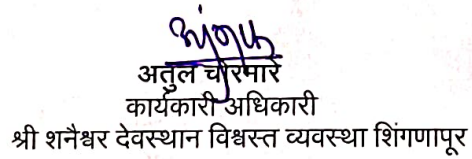 अतुल चोरमारे
कार्यकारी अधिकारी
श्री शनैश्वर देवस्थान विश्वस्त व्यवस्था शिंगणापूर